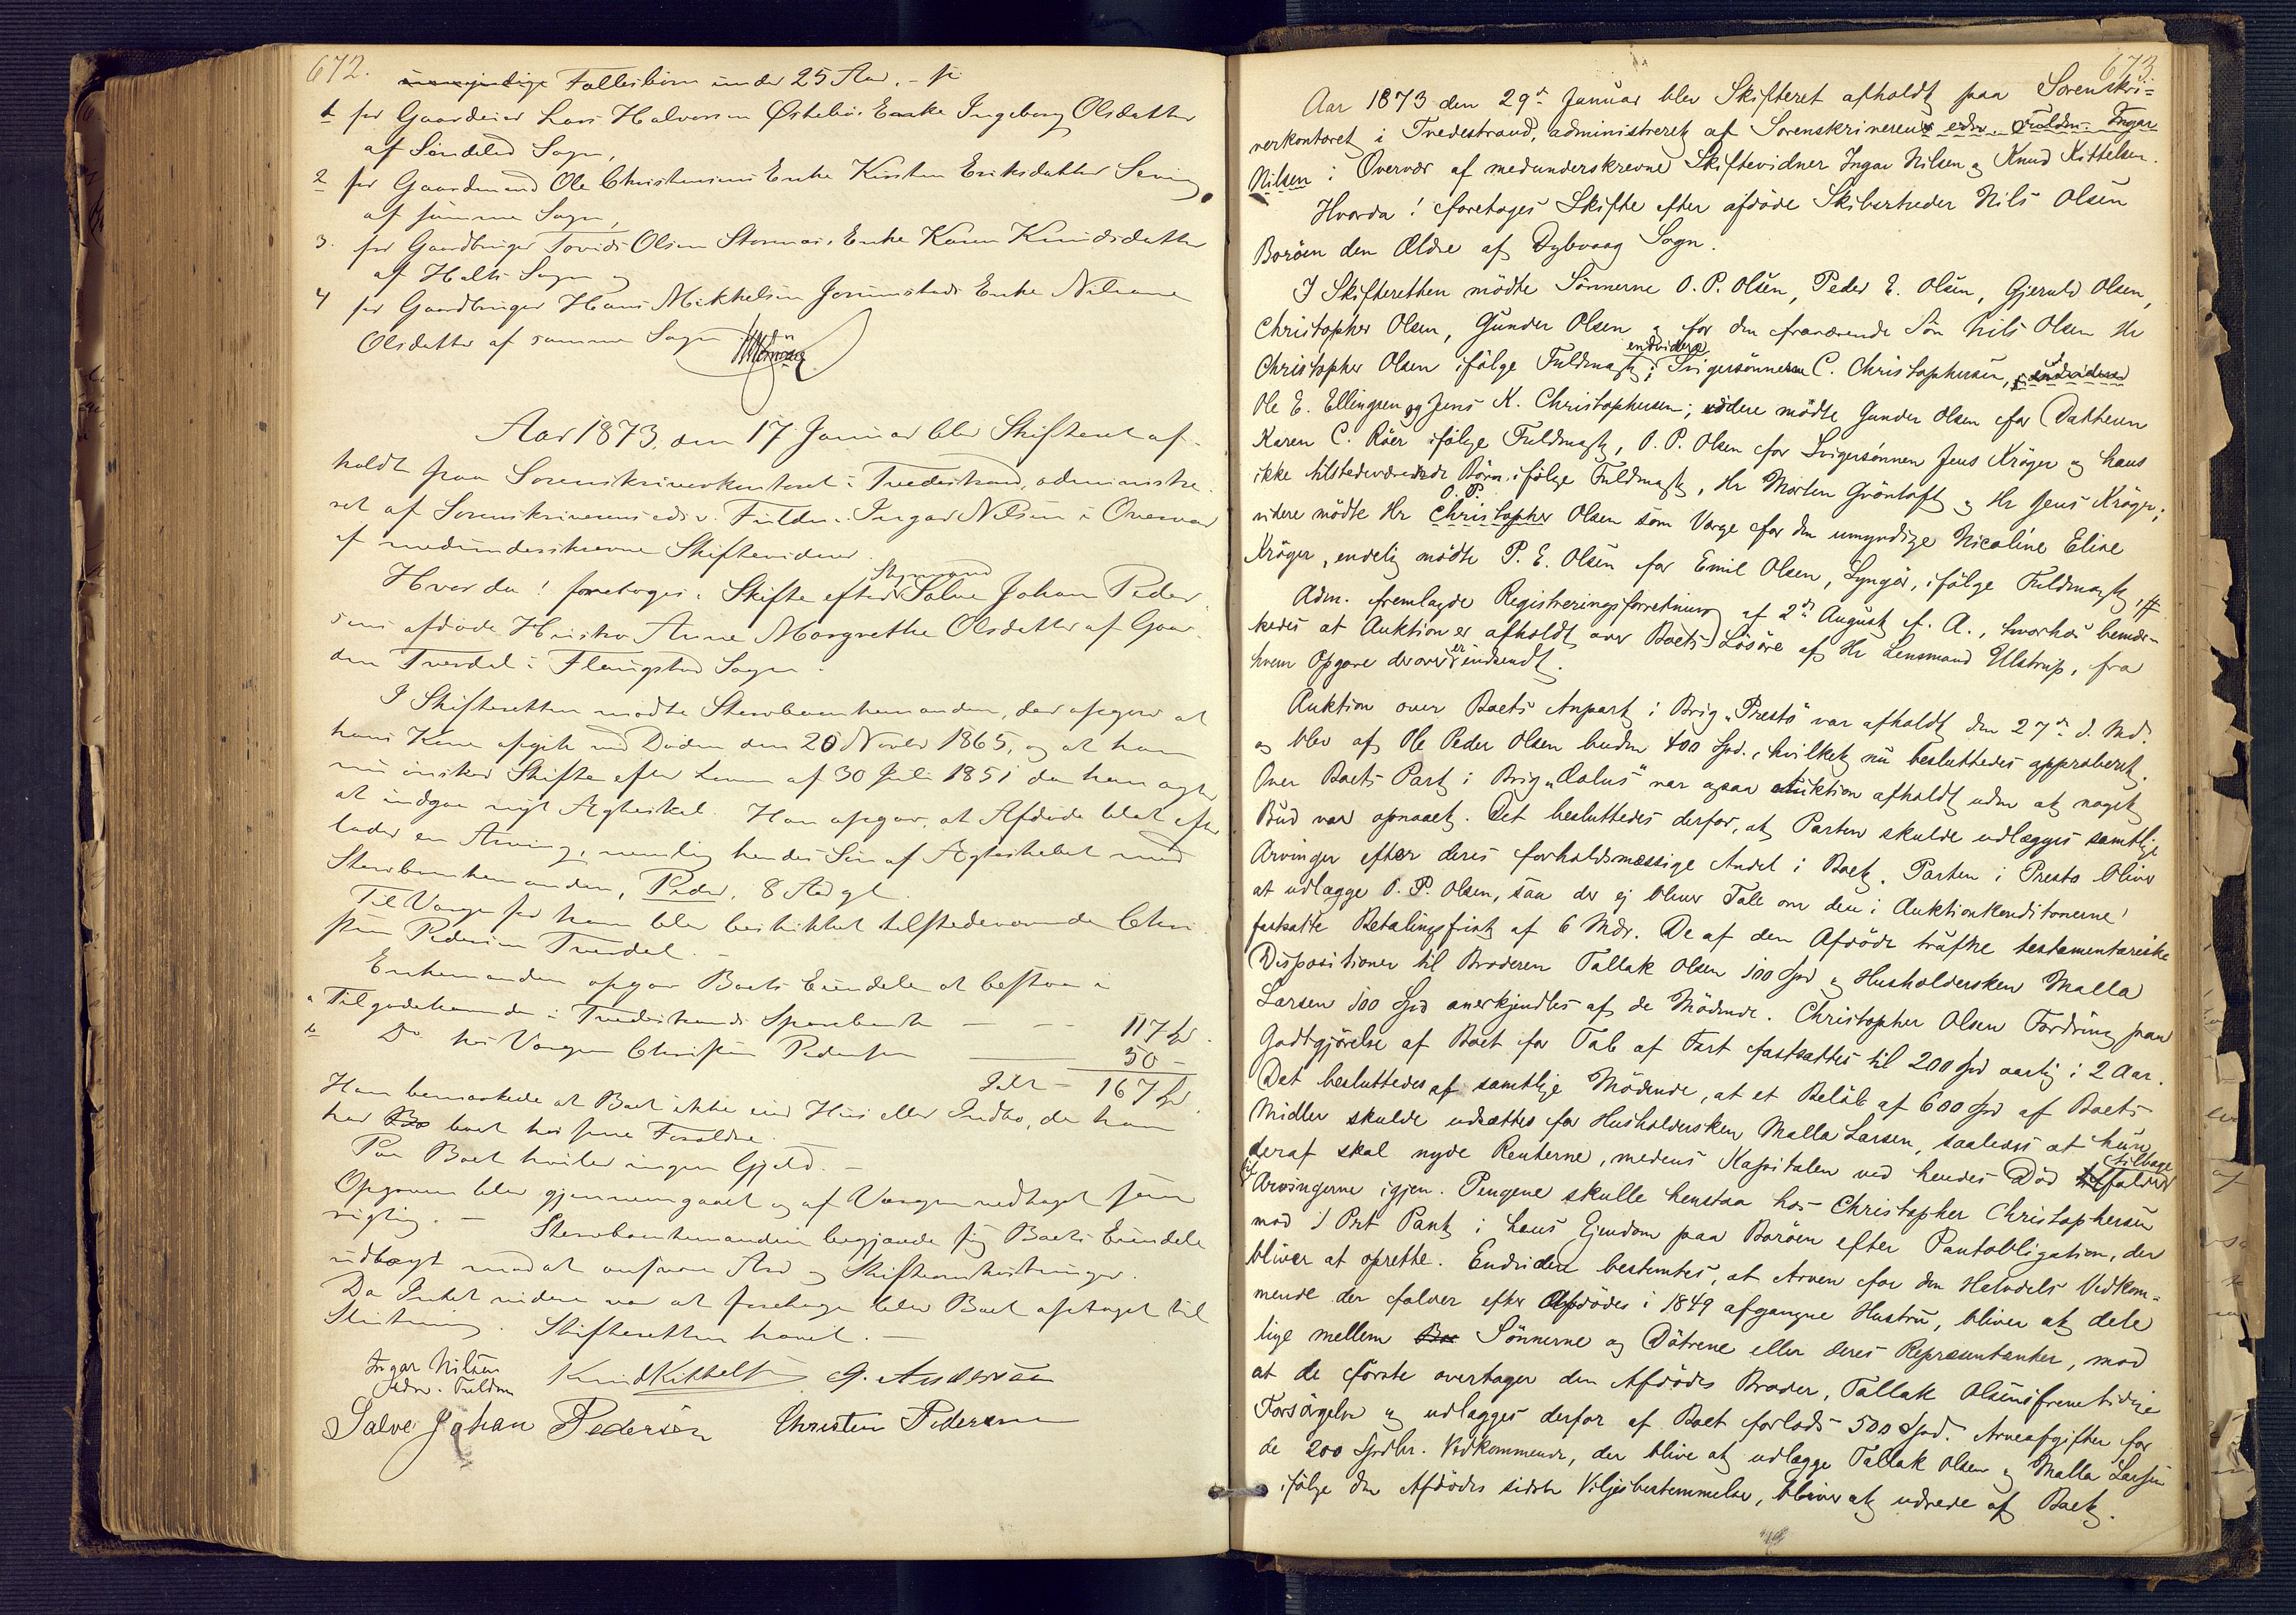 672.
umyndige Fællesbörn under 25 Aar, –
1 for Gaardeier Lars Halvorsen Østebös Enke Ingeborg Olsdatter
af Söndeled Sogn,
2 for Gaardmand Ole Christensens Enke Kirsten Eriksdatter
af samme Sogn,
3. for Gaardbruger Tovids Olsen Enke Karen Knudsdatter
af Holts Sogn og
4 for Gaardbruger Hans Mikkelsen Enke
Olsdatter af samme Sogn
Aar 1873, den 17 Januar blev Skifteret af-
holdt paa Sorenskriverkontoret i Tvedestrand, administre-
ret af Sorenskriverens edsv. Fuldm. Ingar Nilsen i Overvær
af medunderskrevne Skiftevidner.
Styrmand
Hvorda! foretoges Skifte efter Salve Johan Peder-
sens afdöde Hustru Anne Margrethe Olsdatter af Gaar-
den Tverdal i Flaugstad Sogn.
I Skifteretten mödte Stervboenkemanden, der opgav at
hans Kone afgik ved Döden den 20 Novbr 1865, og at han
nu önsker Skifte efter Loven af 30 Juli 1851 da han agter
at indgaa nyt Ægteskab. Han opgav, at Afdöde blot efter-
lader en Arving, nemlig hendes Sön af Ægteskabet med
Stervboenkemanden, Peder, 8 Aar gl.
Til Værge for ham blev beskikket tilstedeværende Chri-
sten Pedersen Tverdal. –
Enkemanden opgav Boets Eiendele at bestaa i
a Tilgodehavende i Tvedestrands Sparebank – – – 117 Spd.
b Do hos Værgen Christen Pedersen – 50 –
Ialt – 167 Spd.
Han bemærkede at Boet ikke eied Hus eller Indbo, da han
har Bo boet hos sine Forældre.
Paa Boet hviler ingen Gjæld. –
Opgaven blev gjennemgaaet og af Værgen vedtaget som
rigtig. – Stervboenkemanden begjærede sig Boets Eiendele
udlagt mod at ansvare Arv og Skifteomkostninger.
Da Intet videre var at foretage blev Boet optaget til
Slutning. Skifteretten hævet. –
Ingar Nilsen Knud Kittelsen G. Andersen
edsv. Fuldm
Salve Johan Pedersen Christen Pedersen
673
Aar 1873 den 29de Januar blev Skifteret afholdt paa Sorenskri-
verkontoret i Tvedestrand, administreret af Sorenskriverens edsv. Fuldm. Ingar
Nilsen i Overvær af medunderskrevne Skiftevidner Ingar Nilsen og Knud Kittelsen.
Hvorda! foretoges Skifte efter afdöde Skibsrheder Nils Olsen
Boröen den Ældre af Dybvaag Sogn.
I Skifteretten mödte Sönnerne O. P. Olsen, Peder E. Olsen, Gjeruld Olsen,
Christopher Olsen, Gunder Olsen og for den fraværende Sön Nils Olsen Hr
endvidere
Christopher Olsen ifölge Fuldmagt; Svigersönnerne C. Christophersen, endvidere
Ole E. Ellingsen og Jens K. Christophersen; videre mödte Gunder Olsen for Datteren
Karen C. Röer ifölge Fuldmagt, O. P. Olsen for Svigersönnen Jens Kröger og hans
ikke tilstedeværende Börn ifölge Fuldmagt, Hr Morten Gröntoft og Hr Jens Kröger;
O. P.
videre mödte Hr Christopher Olsen som Værge for den umyndige Nicoline Elise
Kröger, endelig mödte P. E. Olsen for Emil Olsen, Lyngör, ifölge Fuldmagt,
Adm. fremlagde Registreringsforretning af 2den August f. A., hvorhos bemær-
kedes at Auktion er afholdt over Boets Lösöre af Hr Lensmand Ulstrup, fra
hvem Opgave derover er indsendt.
Auktion over Boets Anpart i Brig „Presto" var afholdt den 27de d. Md.
og blev af Ole Peder Olsen buden 400 Spd., hvilket nu besluttedes approberet.
Over Boets Part i Brig „Æolus" var ogsaa Auktion afholdt uden at noget
Bud var opnaaet. Det besluttedes derfor, at Parten skulde udlægges samtlige
Arvinger efter deres forholdsmæssige Andel i Boet. Parten i Presto bliver
at udlægge O. P. Olsen, saa der ej bliver Tale om den i Auktionkonditionerne
fastsatte Betalingsfrist af 6 Mdr. De af den Afdöde trufne testamentariske
Dispositioner til Broderen Tallak Olsen 100 Spd og Husholdersken Malla
Larsen 100 Spd anerkjendtes af de Mödende. Christopher Olsen Fordring paa
Godtgjörelse af Boet for Tab af Fart fastsattes til 200 Spd aarlig i 2 Aar.
Det besluttedes af samtlige Mödende, at et Belöb af 600 Spd af Boets
Midler skulde udsættes for Husholdersken Malla Larsen, saaledes at hun
deraf skal nyde Renterne, medens Kapitalen ved hendes Död tilbage falder
til Arvingerne igjen. Pengene skulle henstaa hos Christopher Christophersen
mod 1 Prt Pant i hans Ejendom paa Boröen efter Pantobligation, der
bliver at oprette. Endvidere bestemtes, at Arven for den Halvdels Vedkom-
mende der falder efter Afdödes i 1849 afgangne Hustru, bliver at dele
lige mellem Boe Sönnerne og Dötrene eller deres Repræsentanter, mod
at de förste overtager den Afdödes Broder, Tallak Olsens fremtidige
Forsörgelse og udlægges derfor af Boet forlods 500 Spd. Arveafgiften for
de 200 Spdlr. Vedkommende, der blive at udlægge Tallak Olsen og Malla Larsen
ifölge den Afdödes sidste Viljesbestemmelse, bliver at udrede af Boet.